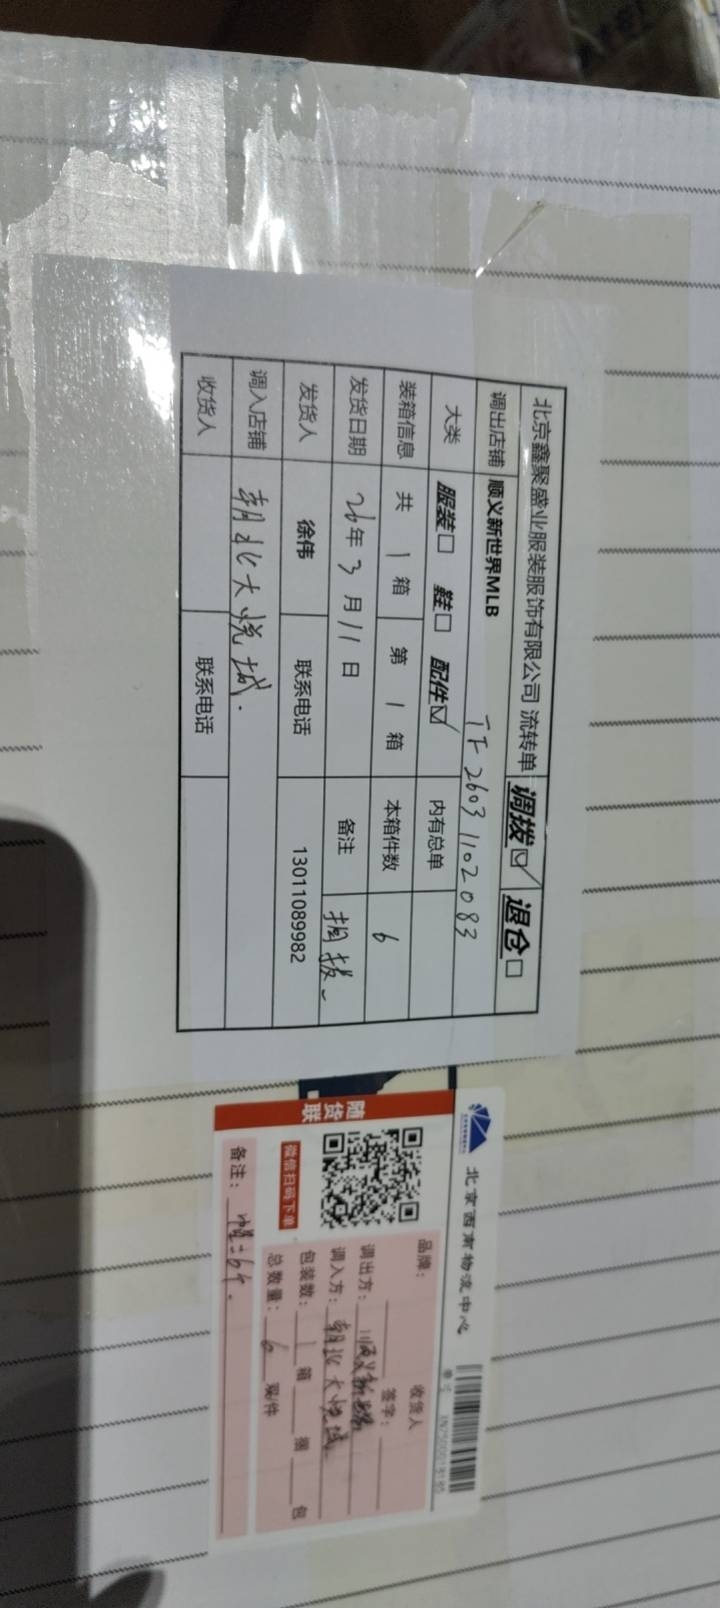 北京鑫聚盛业服装服饰有限公司 流转单 调拨☑ 退仓□
调出店铺 顺义新世界MLB TF26031102083
大类 服装□ 鞋□ 配件☑ 内有总单
装箱信息 共 1 箱 第 1 箱 本箱件数 6
发货日期 26年3月11日 备注 调拨
发货人 徐伟 联系电话 13011089982
调入店铺 朝北大悦城.
收货人 联系电话
北京西南物流中心
单号
随货联
微信扫码下单
品牌： 收货人签字：
调出方： 顺义新世界
调入方： 朝北大悦城
包装数： 1 箱 捆 包
总数量： 6 双/件
备注： 帽=6个.